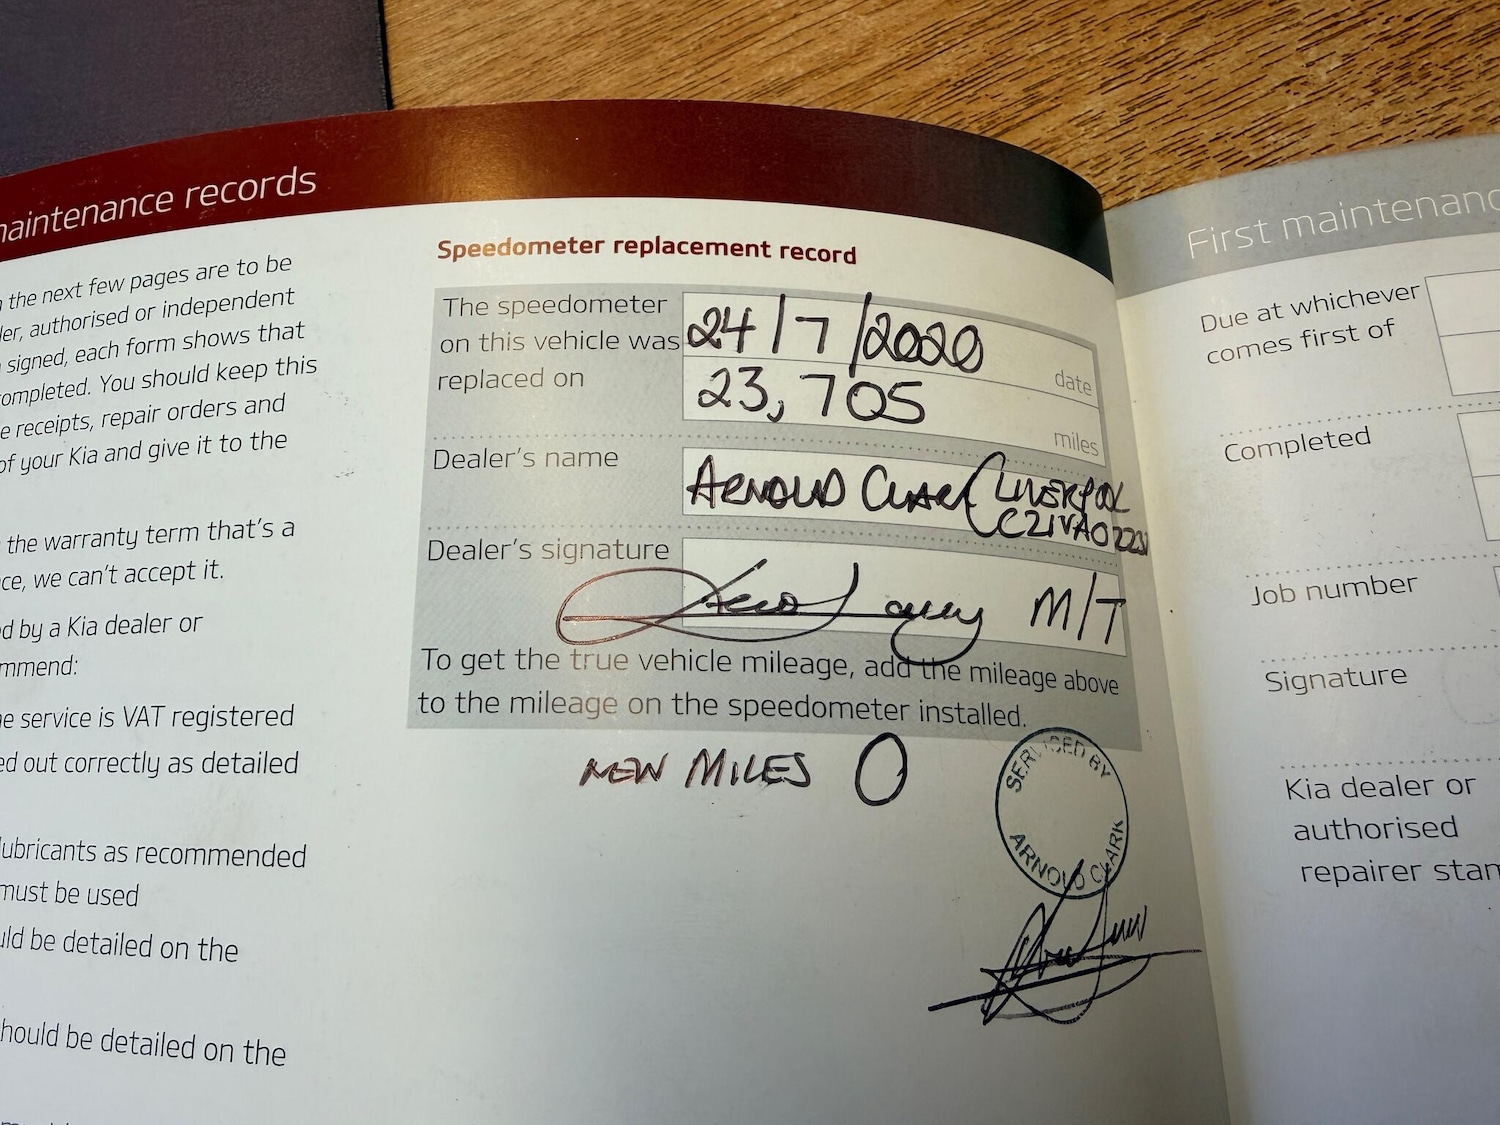 maintenance records
n the next few pages are to be
ler, authorised or independent
signed, each form shows that
completed. You should keep this
e receipts, repair orders and
of your Kia and give it to the
the warranty term that's a
ce, we can't accept it.
d by a Kia dealer or
mmend:
e service is VAT registered
ed out correctly as detailed
lubricants as recommended
must be used
uld be detailed on the
hould be detailed on the
Speedometer replacement record
The speedometer
on this vehicle was
replaced on
24/7/2020
date
23,705
miles
Dealer's name
ARNOLD CLARK (LIVERPOOL
Dealer's signature
M/T
To get the true vehicle mileage, add the mileage above
to the mileage on the speedometer installed.
NEW MILES 0
SERVICED BY
ARNOLD CLARK
First maintenanc
Due at whichever
comes first of
Completed
Job number
Signature
Kia dealer or
authorised
repairer stam